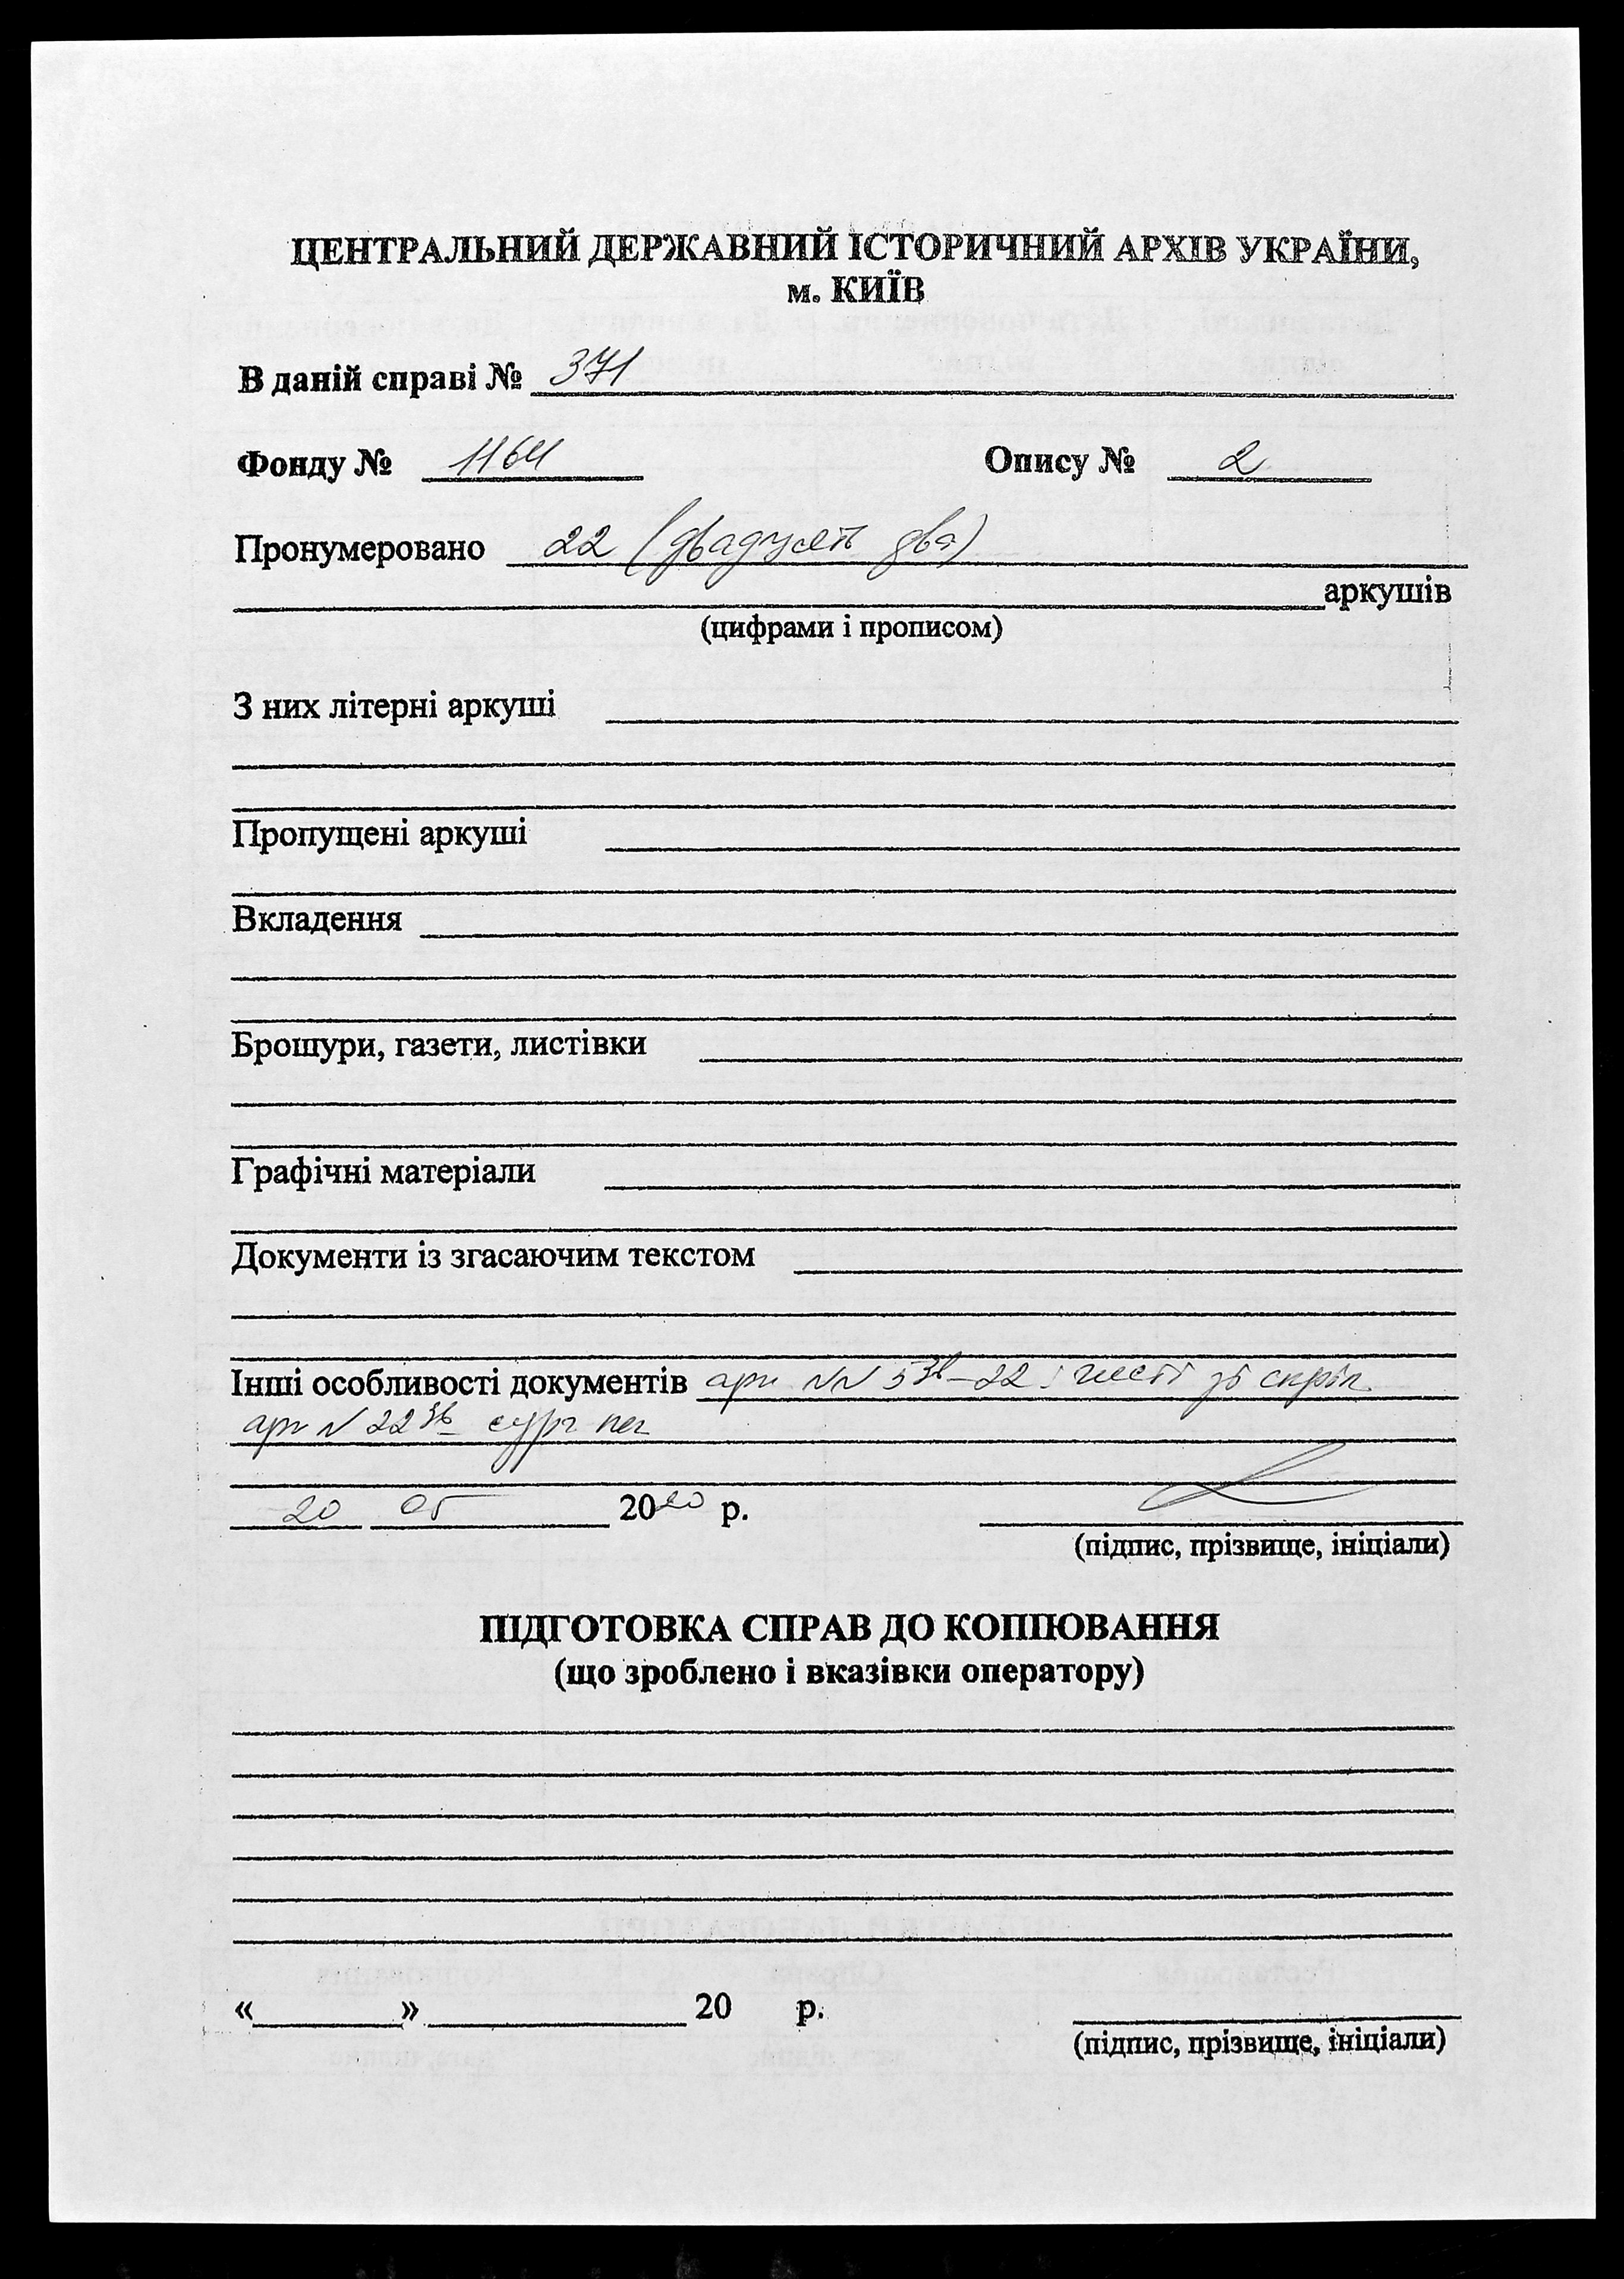 ЦЕНТРАЛЬНИЙ ДЕРЖАВНИЙ ІСТОРИЧНИЙ АРХІВ УКРАЇНИ,
м. КИЇВ
В даній справі № 371
Фонду № 1164 Опису № 2
Пронумеровано 22 (двадцять два)
аркушів
(цифрами і прописом)
З них літерні аркуші
Пропущені аркуші
Вкладення
Брошури, газети, листівки
Графічні матеріали
Документи із згасаючим текстом
Інші особливості документів арк NN 5зв-22 : чисті зі скріп.
арк N 22зв - сург печ
20 05 2020 р.
(підпис, прізвище, ініціали)
ПІДГОТОВКА СПРАВ ДО КОПІЮВАННЯ
(що зроблено і вказівки оператору)
« » 20 р.
(підпис, прізвище, ініціали)